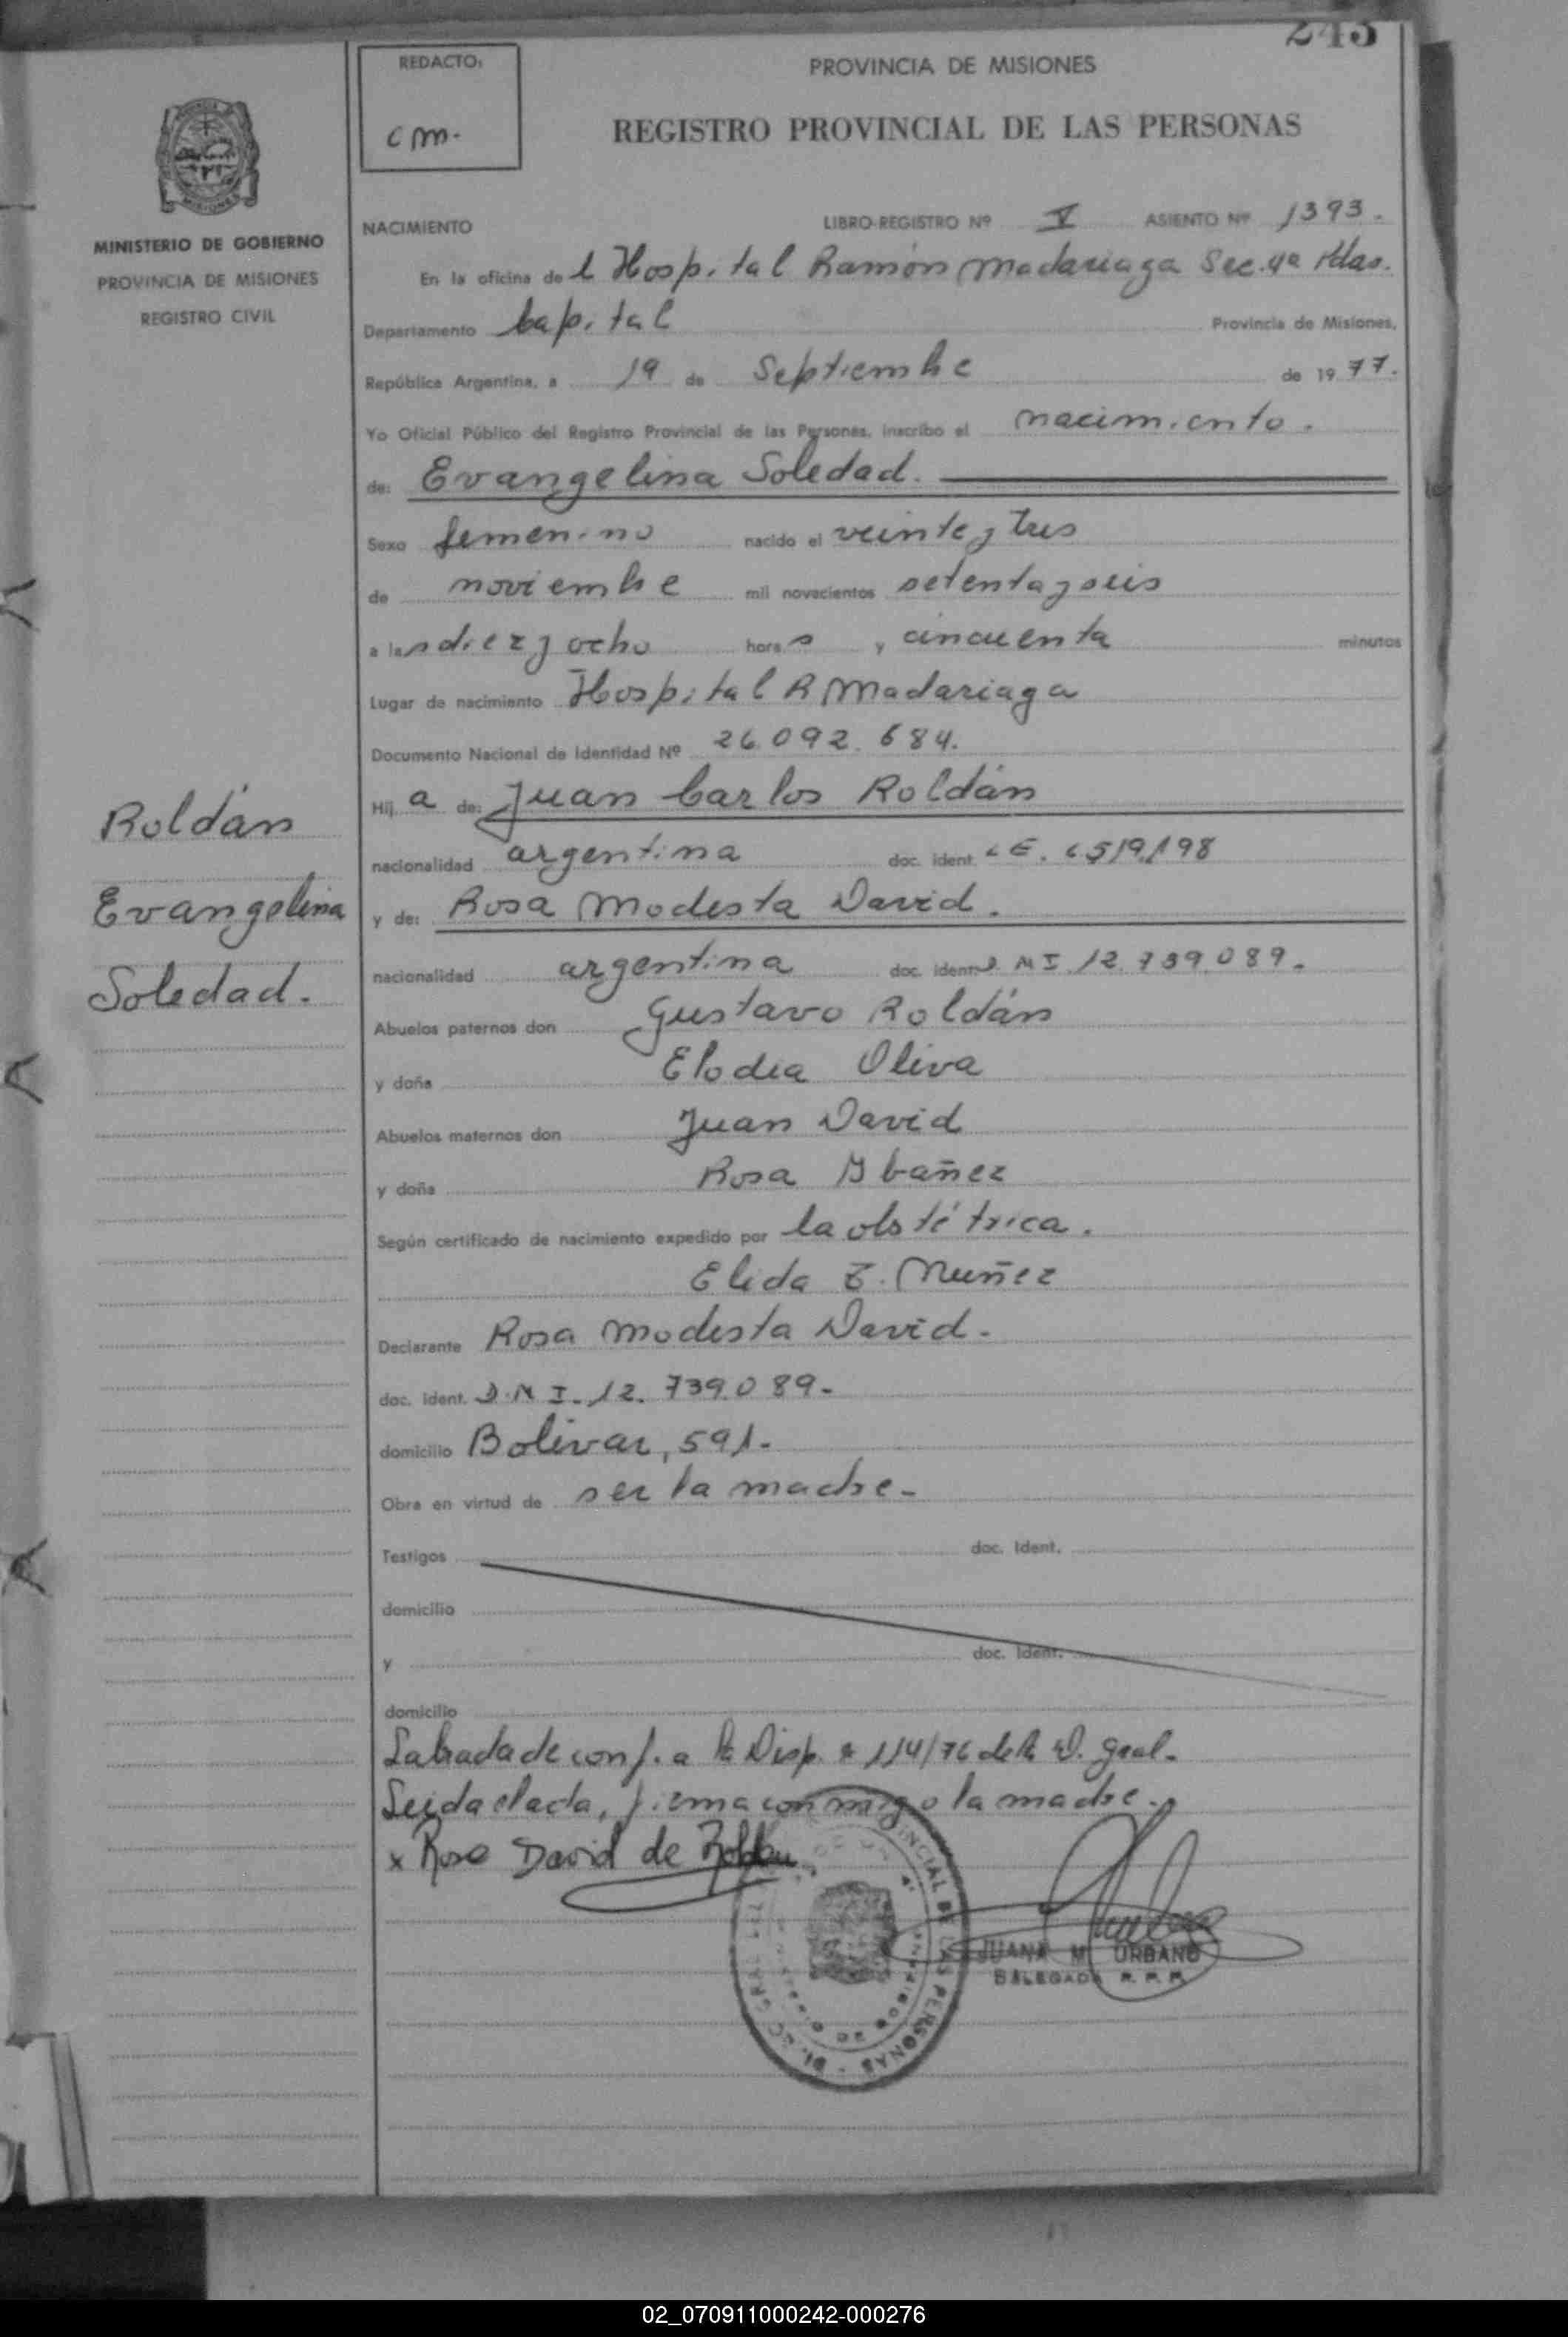 243
REDACTO:
cm.
PROVINCIA DE MISIONES
REGISTRO PROVINCIAL DE LAS PERSONAS
MINISTERIO DE GOBIERNO
PROVINCIA DE MISIONES
REGISTRO CIVIL
NACIMIENTO LIBRO-REGISTRO Nº V ASIENTO Nº 1393.
En la oficina de l Hospital Ramón Madariaga Sec. 4ª Pdas.
Departamento Capital Provincia de Misiones,
República Argentina, a 19 de Septiembre de 1977.
Yo Oficial Público del Registro Provincial de las Personas, inscribo el nacimiento.
de: Evangelina Soledad.
Sexo femenino nacido el veinte y tres
de noviembre mil novecientos setenta y seis
a las diez y ocho hora s y cincuenta minutos
Lugar de nacimiento Hospital R Madariaga
Documento Nacional de Identidad Nº 26.092.684.
Hij a de: Juan Carlos Roldán
nacionalidad argentina doc. ident. LE. 6519198
y de: Rosa Modesta David.
nacionalidad argentina doc. ident. D.N I 12.739.089.
Roldán
Evangelina
Soledad.
Abuelos paternos don Gustavo Roldán
y doña Elodia Oliva
Abuelos maternos don Juan David
y doña Rosa Ybañez
Según certificado de nacimiento expedido por la obstétrica.
Elida E. Nuñez
Declarante Rosa Modesta David.
doc. ident. D.N I. 12.739.089.
domicilio Bolivar, 591.
Obra en virtud de ser la madre.
Testigos doc. Ident.
domicilio
y doc. Ident.
domicilio
Labrada de conf. a la Disp. 114/76 de la D. Gral.
Leida el acta, firma conmigo la madre.
x Rosa David de Roldan
JUANA M. URBANO
DELEGADA R. P. P.
02_070911000242-000276